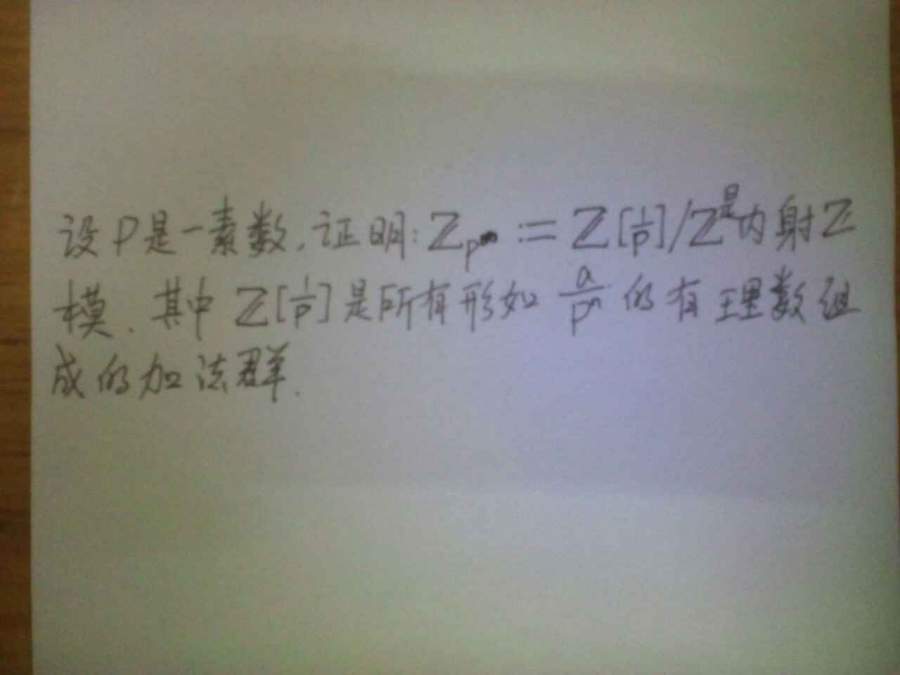 设P是一素数,证明:ℤ_{p^∞} := ℤ[1/p]/ℤ是内射ℤ
模.其中 ℤ[1/p]是所有形如 a/pⁿ 的有理数组
成的加法群.